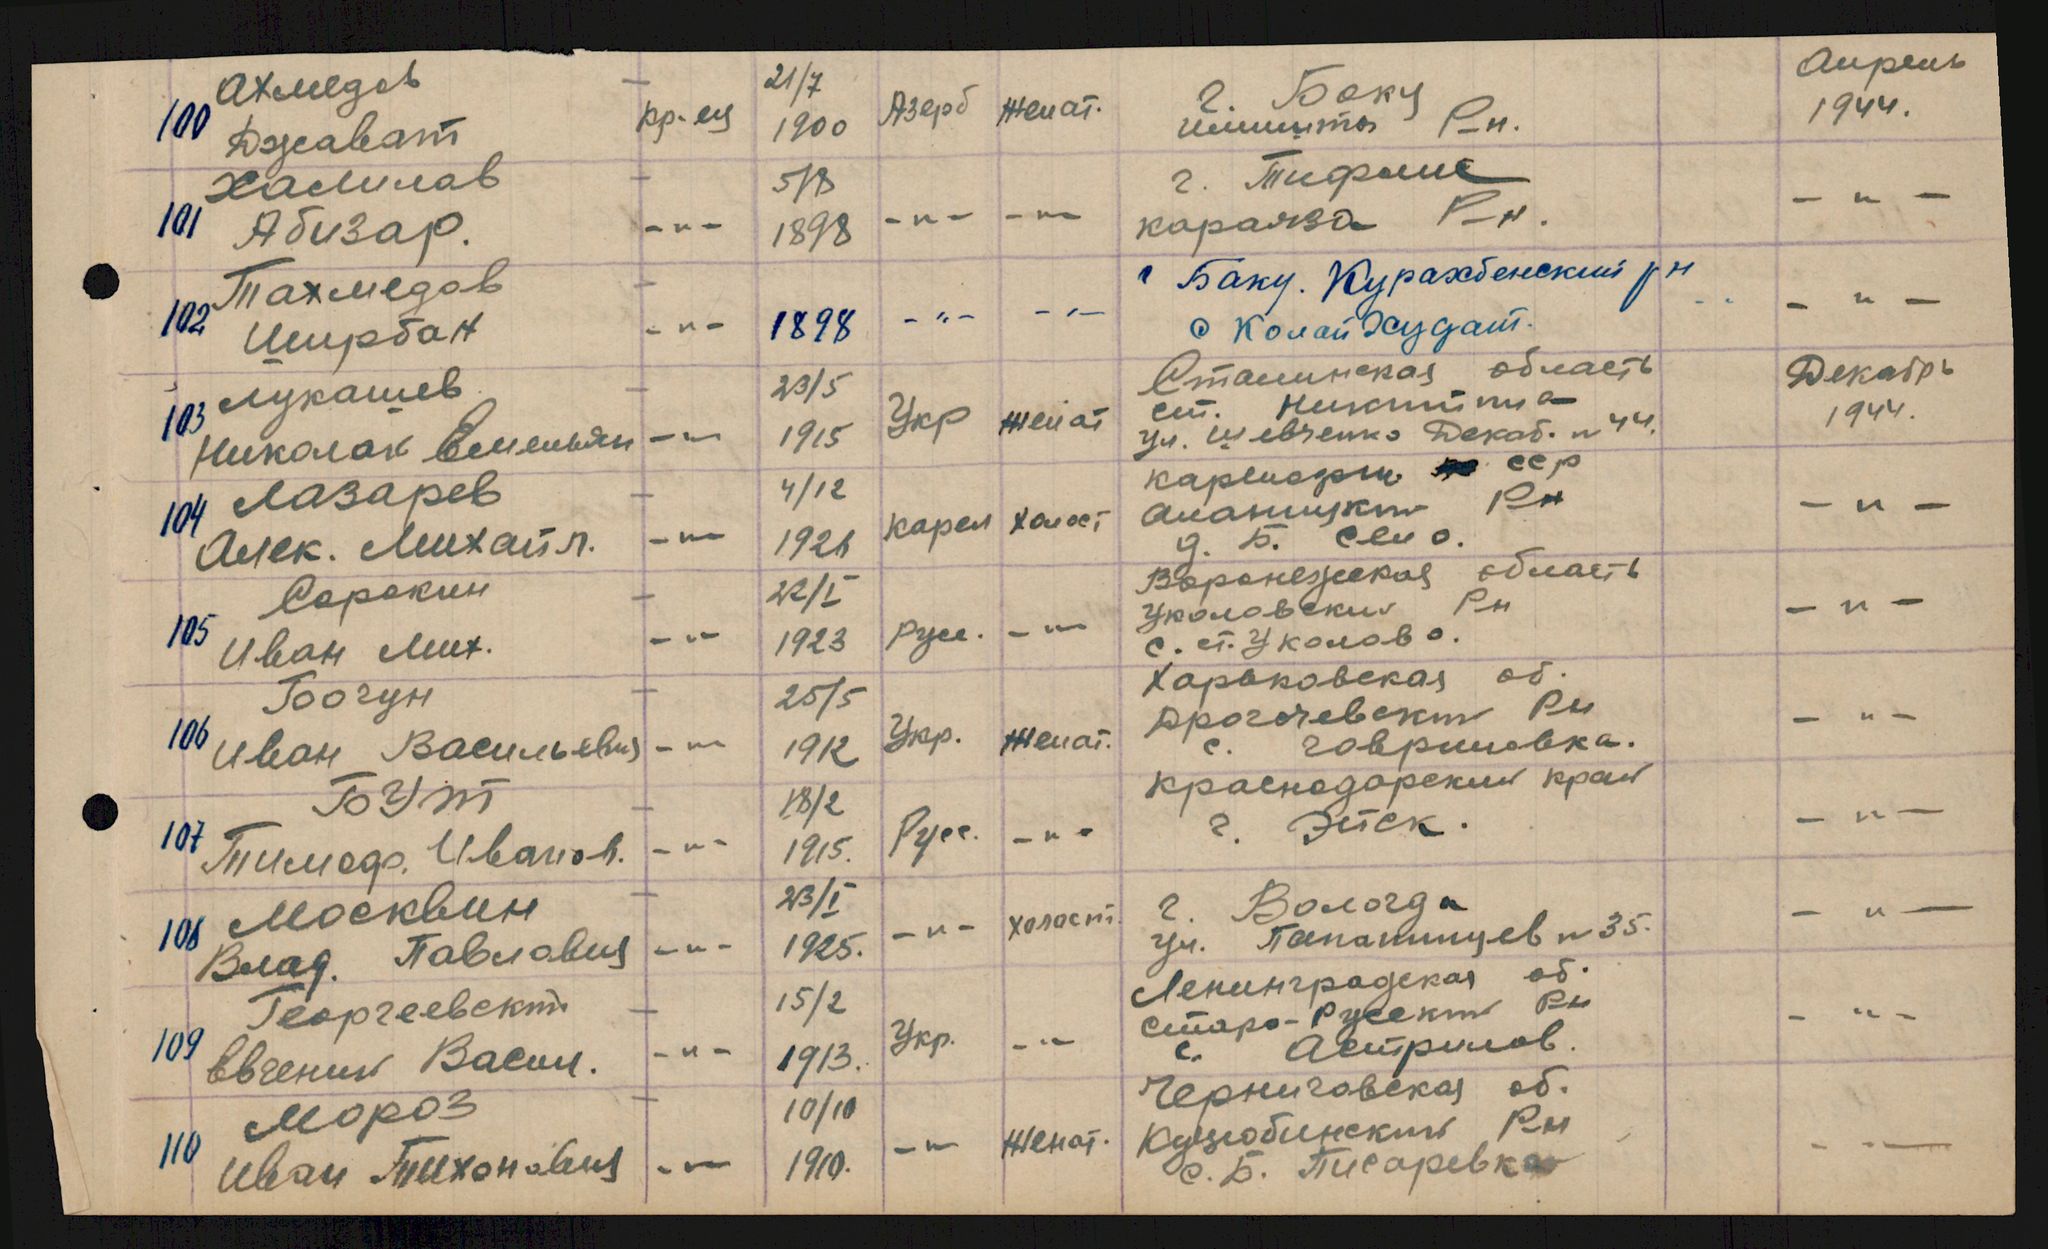 Ахмедов 21/7 г. Баку Апрель
100 Джават кр-ец 1900 Азерб Женат. Р-н. 1944.
Халилов 5/8 г. Тифлис
101 Абизар. -"- 1898 -"- -"- Караяза Р-н. - " -
Тахмедов г Баку. Курахбенский рн
102 Ширбан -"- 1898 -"- -"- с Колай Худат. - " -
Лукашев 23/5 Сталинская область Декабрь
103 Николай Емельян -"- 1915 Укр Женат ст. Никитина 1944.
ул. Шевченко Декаб. N 44.
Лазарев 4/12 ССР
104 Алек. Михайл. -"- 1921 Карел Холост Р-н - " -
д. Б. Село.
Сорокин 22/I Воронежская область
105 Иван Мих. -"- 1923 Русс. -"- Уколовский Рн - " -
с. ст. Уколово.
Богун 25/5 Харьковская об.
106 Иван Васильевич -"- 1912 Укр. Женат. Рн - " -
с. Говриловка.
Бут 18/2 Краснодарский край
107 Тимоф. Иванов. -"- 1915. Русс. -"- г. Эйск. - " -
Москвин 23/I г. Вологда
108 Влад. Павлович -"- 1925. -"- холост. ул. Папанинцев N 35. - " -
Георгеевский 15/2 Ленинградская об.
109 Евгений Васил. -"- 1913. Укр. -"- Старо-Русский Рн - " -
с. Астрилов.
Мороз 10/10 Черниговская об.
110 Иван Тихонович -"- 1910. -"- Женат. Куцюбинский Р-н - " -
с. Б. Писаревка